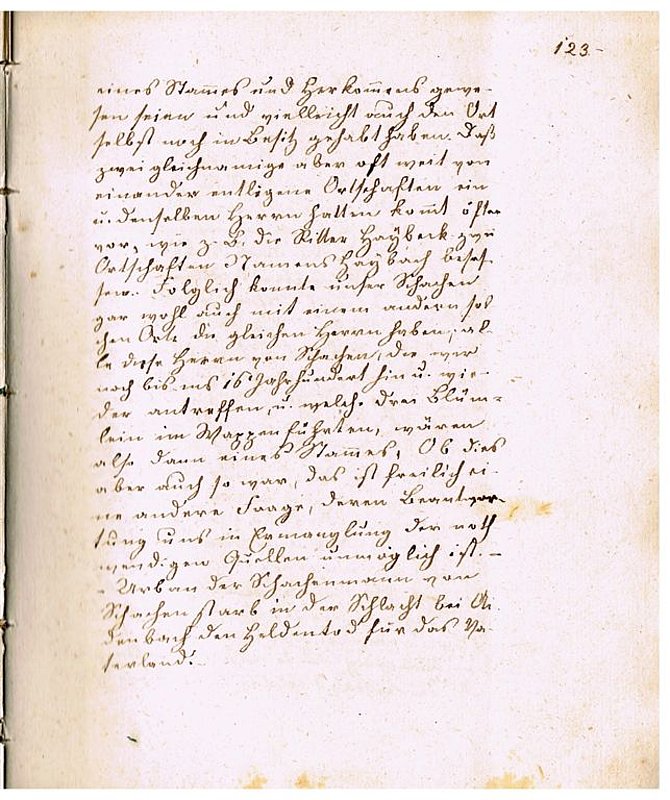 123.
eines Stam̅es und Herkom̅ens gewe-
sen seien und vielleicht auch den Ort
selbst noch in Besitz gehabt haben. Daß
zwei gleichnamige aber oft weit von
einander entligene Ortschaften ein
u. denselben Herrn hatten kom̅t öfter
vor, wie z. B. die Ritter Haybeck zwei
Ortschaften Namens Haybach beses-
sen. Folglich konnte unser Schachen
gar wohl auch mit einem andern sol
chen Orte die gleichen Herrn haben; al-
le diese Herrn von Schachen, die wir
noch bis ins 16 Jahrhundert hin u. wie-
der antreffen, u. welche drei Blüm-
lein im Wappen führten, wären
also dann eines Stam̅es. Ob dies
aber auch so war, das ist freilich ei-
ne andere Frage, deren Beantwor-
tung uns in Ermanglung der noth
wendigen Quellen unmöglich ist. –
– Urban der Schachenmann von
Schachen starb in der Schlacht bei Ai-
denbach den Heldentod für das Va-
terland.